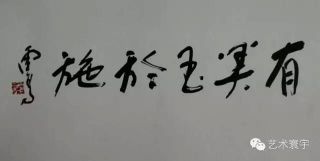 有美玉於施
艺术寰宇